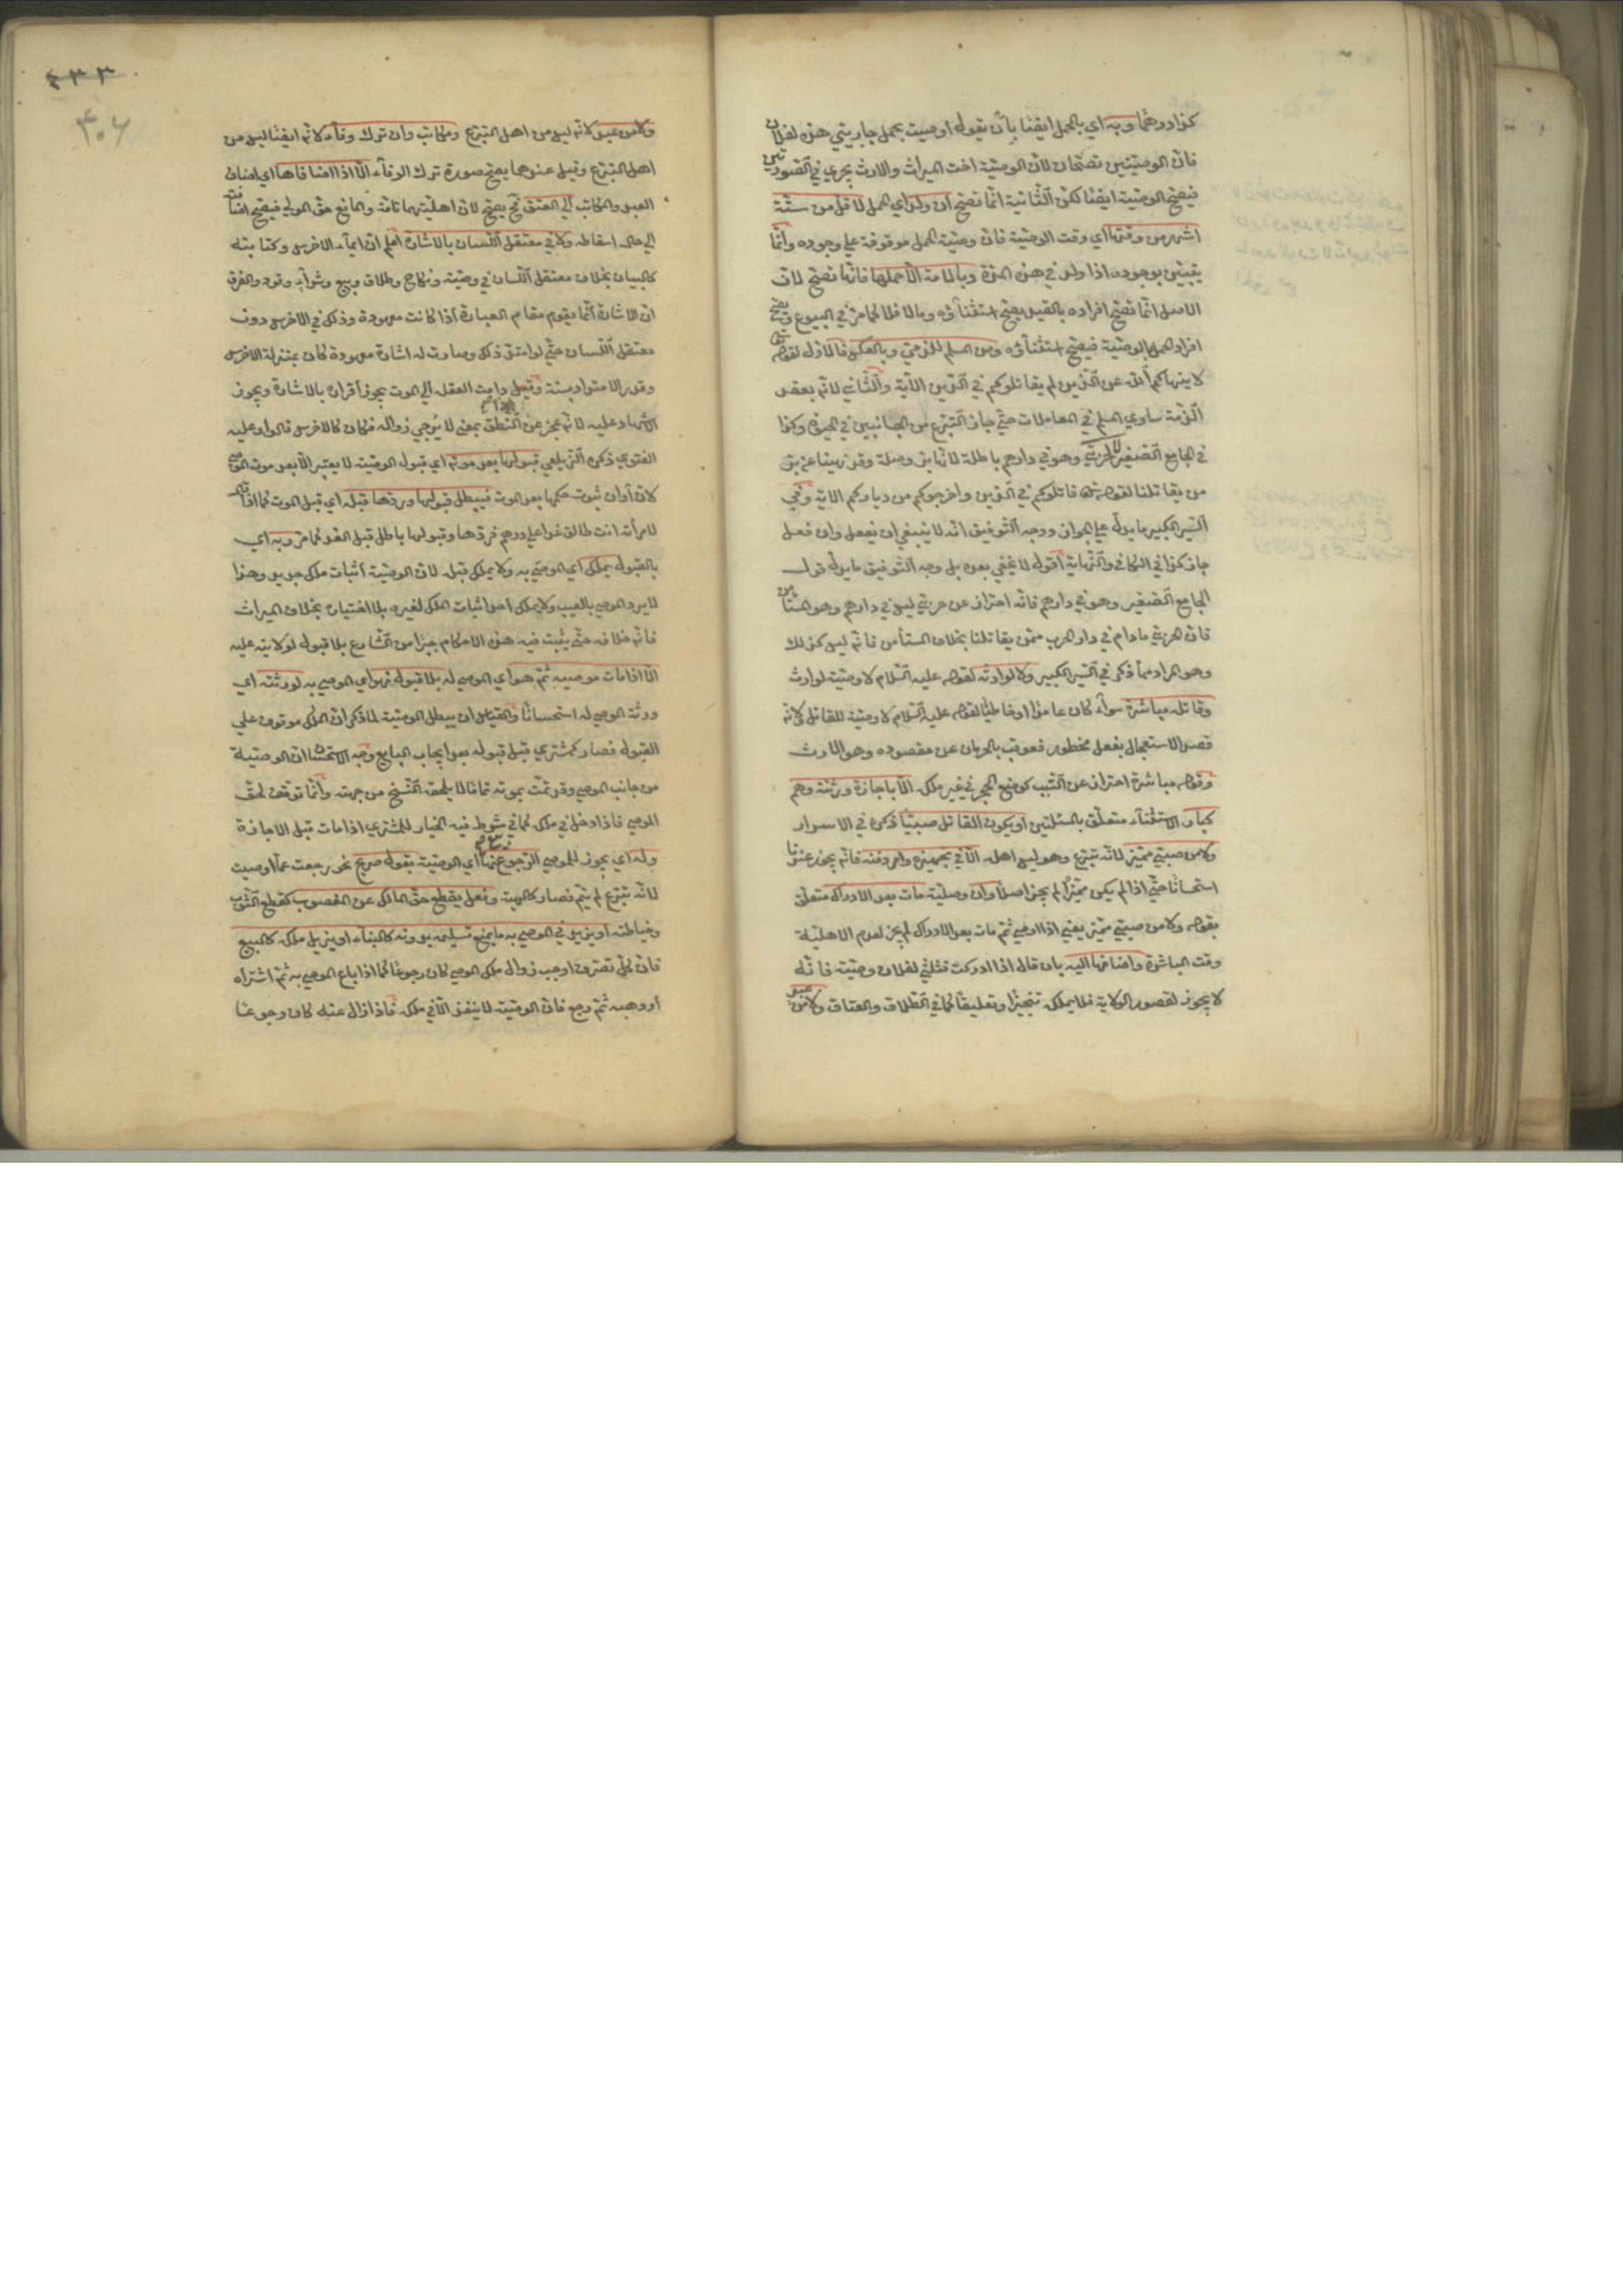 كذا درهما وبه اي بالحمل ايضا بان يقول اوصيت بحمل جاريتي هذه لفلان
فان الوصيتين تصحان لان الوصية اخت الميراث والارث يجري في الصورتين
فيصح الوصية ايضا لكن الثانية انما تصح ان ولد اي الحمل لاقل من ستة
اشهر من وقتها اي وقت الوصية فان وصية الحمل موقوفة على وجوده وانما
يتيقن بوجوده اذا ولد في هذه المدة وبالامة الا حملها فانها تصح لان
الاصل انما تصح افراده بالعقد يصح استثناؤه ومالا فلا كما مر في البيوع وتصح
افراد الحمل بالوصية فيصح استثناؤه ومن المسلم للذمي وبالعكس فالاول لقوله تعالى
لا ينهاكم الله عن الذين لم يقاتلوكم في الدين الآية والثاني لانهم بعقد
الذمة ساوى المسلم في المعاملات حتى جاز التبرع من الجانبين في الحيوة وكذا
في الجامع الصغير لا لحربي وهو في دارهم باطلة لانها بر وصلة وقد نهينا عن بر
من يقاتلنا لقوله تعالى قاتلوكم في الدين واخرجوكم من دياركم الآية وفي
السير الكبير ما يدل على الجواز ووجه التوفيق انه لا ينبغي ان يفعل وان فعل
جاز كذا في الكافي والنهاية اقول لا يخفى بعده بل وجه التوفيق ما يدل قول
الجامع الصغير وهو في دارهم فانه احتراز عن حربي ليس في دارهم وهو المستامن
فان الحربي مادام في دار الحرب ممن يقاتلنا بخلاف المستامن فانه ليس كذلك
وهو المراد مما ذكر في السير الكبير ولا لوارثه لقوله عليه السلام لا وصية لوارث
وقاتله مباشرة سواء كان عامدا او خاطئا لقوله عليه السلام لا وصية للقاتل ولانه
قصد الاستعجال بفعل محظور فعوقب بالحرمان عن مقصوده وهو الارث
وقوله مباشرة احتراز عن التسبب كوضع الحجر في غير ملكه الا باجازة ورثته وهم
كبار الاستثناء متعلق بالمسئلتين او يكون القاتل صبيا ذكره في الاسرار
ولا من صبي مميز لانه تبرع وهو ليس اهله الا في تجهيزه وامر دفنه فانه يجوز عندنا
استحسانا حتى اذا لم يكن مميزا لم يجز اصلا وان وصلية مات بعد الادراك متعلق
بقوله ولا من صبي مميز يعني اذا اوصى ثم مات بعد الادراك لم يجز لعدم الاهلية
وقت المباشرة واضافها اليه بان قال اذا ادركت فثلثي لفلان وصية فانه
لا يجوز لقصور الولاية فلا يملكه تنجيزا وتعليقا كما في الطلاق والعتاق ولا من عبد
٤٣٣
٤٠٦
ولا من عبد لانه ليس من اهل التبرع ومكاتب وان ترك وفاء لانه ايضا ليس من
اهل التبرع وقيل عندهما يصح صورة ترك الوفاء الا اذا اضافاها اي اضاف
العبد والمكاتب الى العتق فح يصح لان اهليتهما تامة والمانع حق المولى فيصح اضافته
الى حال اسقاطه ولا في معتقل اللسان بالاشارة اعلم ان ايماء الاخرس وكتابته
كالبيان بخلاف معتقل اللسان في وصية ونكاح وطلاق وبيع وشراء وقود والفرق
ان الاشارة انما يقوم مقام العبارة اذا كانت معهودة وذلك في الاخرس دون
معتقل اللسان حتى لو امتد ذلك وصارت له اشارة معهودة كان بمنزلة الاخرس
وقدر الامتداد بسنة وقيل دامت العقلة الى الموت يجوز اقراره بالاشارة ويجوز
الاشهاد عليه لانه عجز عن النطق بمعنى لا يرجى زواله فكان كالاخرس قالوا وعليه
الفتوى ذكره الزيلعي قبولها بعد موته اي قبول الوصية لا يعتبر الا بعد موت الموصي
لان اوان ثبوت حكمها بعد الموت فيبطل قبولها وردها قبله اي قبل الموت كما اذا قال
لامرأته انت طالق غدا على درهم فردها وقبولها باطل قبل الغد كما مر وبه اي
بالقبول يملك اي الموصى به ولا يملك قبله لان الوصية اثبات ملك جديد ولهذا
لا يرد الموصى بالعيب ولا يملك احد اثبات الملك لغيره بلا اختياره بخلاف الميراث
فانه خلافة حتى يثبت فيه هذه الاحكام جبرا من الشارع بلا قبول لولايته عليه
الا اذا مات موصيه ثم هو اي الموصى له بلا قبول فهو اي الموصى به لورثته اي
ورثة الموصى له استحسانا والقياس ان يبطل الوصية لما ذكر ان الملك موقوف على
القبول فصار كمشتري قبل قبوله بعد ايجاب البايع وجه الاستحسان ان الوصية
من جانب الموصي وقد تمت بموته تماما لا يلحقه الفسخ من جهته وانما توقفت لحق
الموصى فاذا دخل في ملكه كما في شرط فيه الخيار للمشتري اذا مات قبل الاجازة
وله اي يجوز للموصي الرجوع عنها اي الوصية بقول صريح نحو رجعت عما اوصيت
لانه تبرع لم يتم فصار كالهبة وفعل يقطع حق المالك عن المغصوب كقطع الثوب
وخياطته او يزيد في الموصى به ما يمنع تسليمه بدونه كالبناء او يزيل ملكه كالبيع
فان كل تصرف اوجب زوال ملك الموصي كان رجوعا كما اذا باع الموصى به ثم اشتراه
او وهبه ثم رجع فان الوصية لا ينفذ الا في ملكه فاذا ازال عنه كان رجوعا